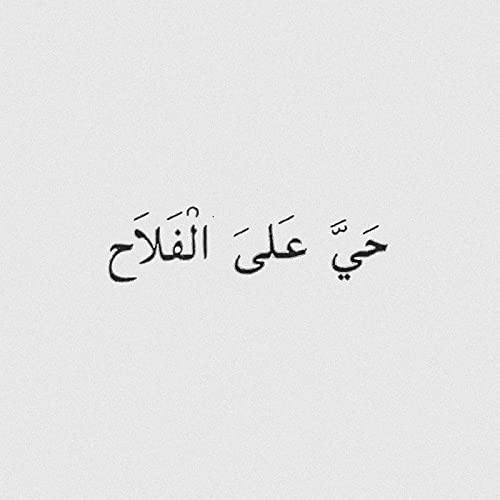 حَيَّ عَلىَ الْفَلاَح